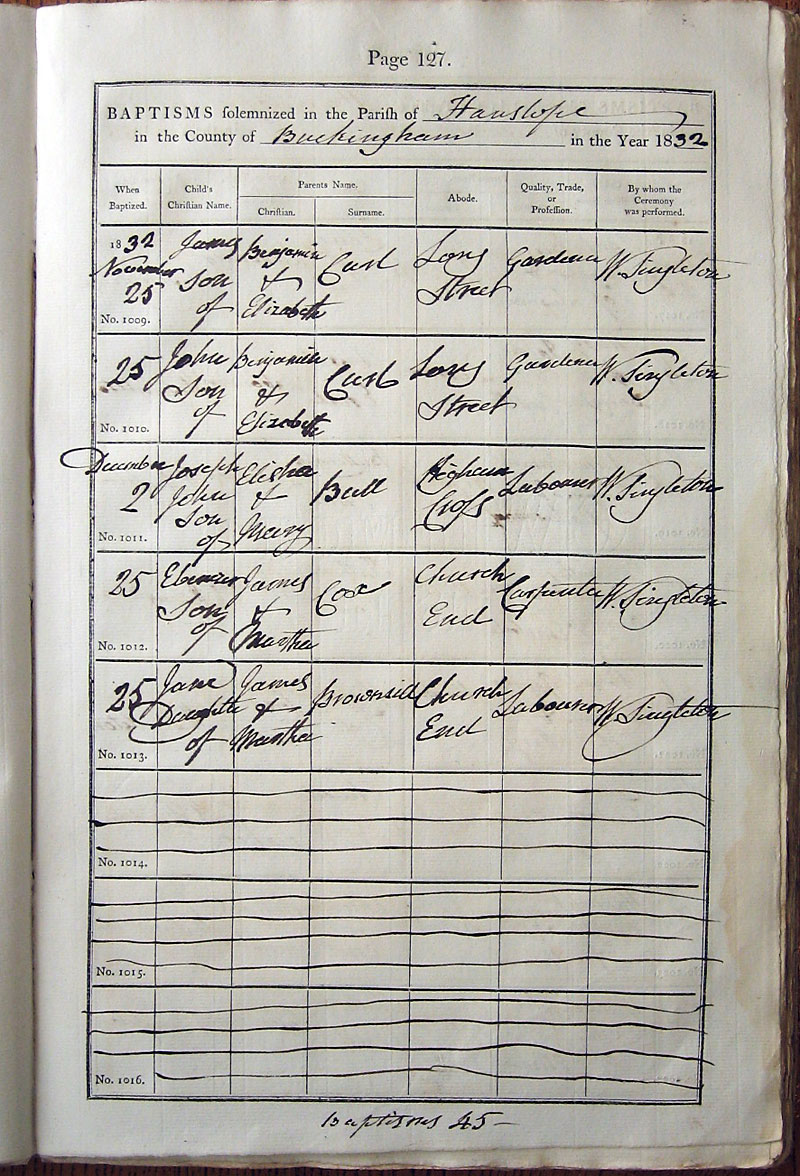 Page 127.
BAPTISMS solemnized in the Parish of Hanslope
in the County of Buckingham in the Year 1832
When Baptized. Child's Christian Name. Parents Name. Abode. Quality, Trade, or Profession. By whom the Ceremony was performed.
Christian. Surname.
1832 James Benjamin Long Gardener W. Singleton
November Son &
25 of Elizabeth Street
No. 1009.
25 John Benjamin Long Gardener W. Singleton
Son & Street
of Elizabeth
No. 1010.
December Joseph Elisha Bull Higham Labourer W. Singleton
2 John & Cross
Son
of Mary
No. 1011.
25 Ebenezer James Cox Church Carpenter W. Singleton
Son & End
of Martha
No. 1012.
25 Jane James Church Labourer W. Singleton
Daughter & End
of Martha
No. 1013.
No. 1014.
No. 1015.
No. 1016.
Baptisms 45